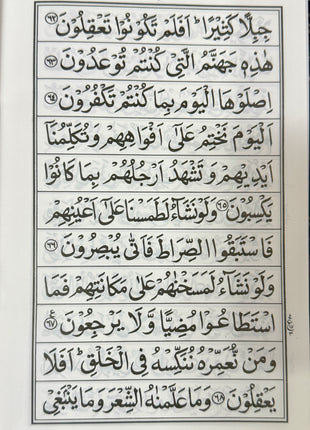 جِبِلًّا كَثِيْرًا ؕ اَفَلَمْ تَكُوْنُوْا تَعْقِلُوْنَ ﴿۶۲﴾
هٰذِهٖ جَهَنَّمُ الَّتِيْ كُنْتُمْ تُوْعَدُوْنَ ﴿۶۳﴾
اِصْلَوْهَا الْيَوْمَ بِمَا كُنْتُمْ تَكْفُرُوْنَ ﴿۶۴﴾
اَلْيَوْمَ نَخْتِمُ عَلٰٓى اَفْوَاهِهِمْ وَتُكَلِّمُنَاۤ
اَيْدِيْهِمْ وَتَشْهَدُ اَرْجُلُهُمْ بِمَا كَانُوْا
يَكْسِبُوْنَ ﴿۶۵﴾ وَلَوْ نَشَآءُ لَطَمَسْنَا عَلٰٓى اَعْيُنِهِمْ
فَاسْتَبَقُوا الصِّرَاطَ فَاَنّٰى يُبْصِرُوْنَ ﴿۶۶﴾
وَلَوْ نَشَآءُ لَمَسَخْنٰهُمْ عَلٰى مَكَانَتِهِمْ فَمَا
اسْتَطَاعُوْا مُضِيًّا وَّلَا يَرْجِعُوْنَ ﴿۶۷﴾ ع
وَمَنْ نُّعَمِّرْهُ نُنَكِّسْهُ فِي الْخَلْقِ ؕ اَفَلَا
يَعْقِلُوْنَ ﴿۶۸﴾ وَمَا عَلَّمْنٰهُ الشِّعْرَ وَمَا يَنْۢبَغِيْ